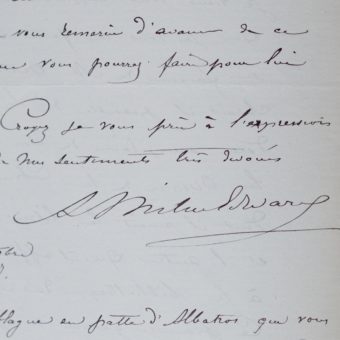 vous remercie d'avance de ce
que vous pourrez faire pour lui
Croyez je vous prie à l'expression
de mes sentiments très dévoués
A Milne Edwards
blague en patte d'Albatros que vous